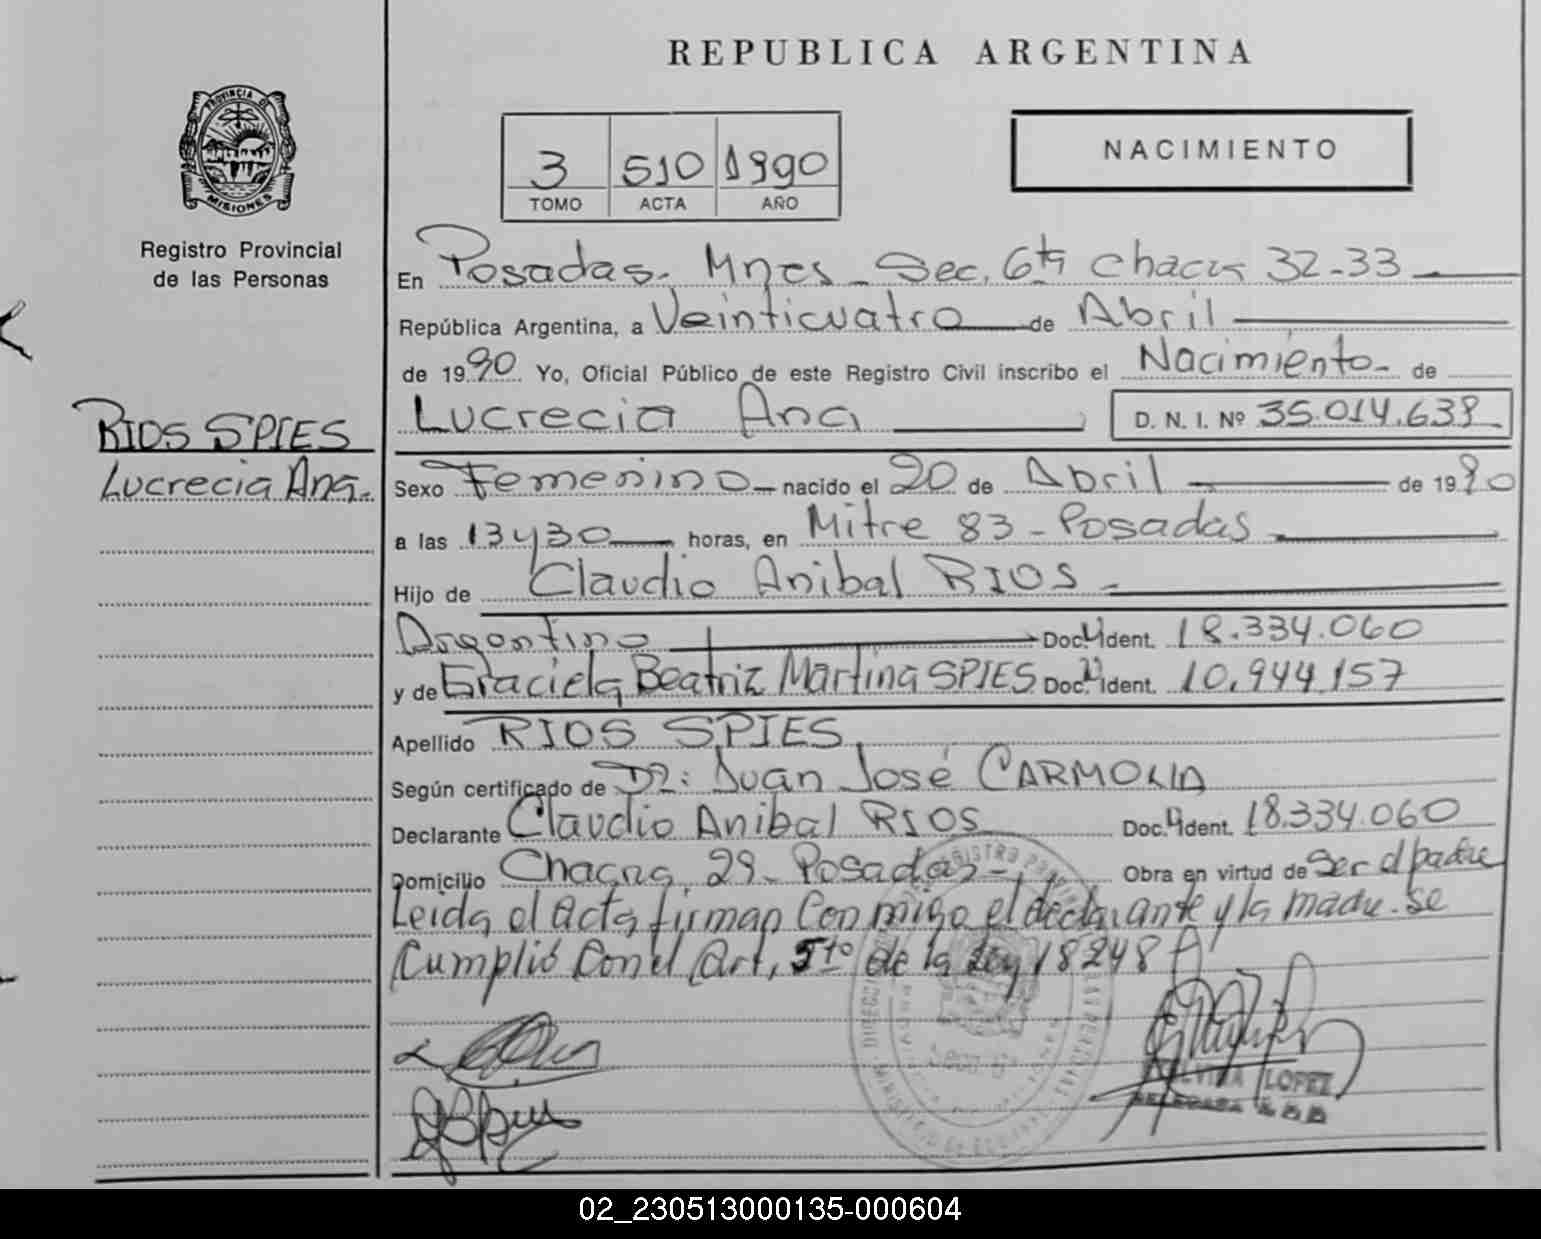 REPUBLICA ARGENTINA
PROVINCIA DE
MISIONES
Registro Provincial
de las Personas
3 510 1990
TOMO ACTA AÑO
NACIMIENTO
En Posadas. Mnes - Sec. 6ta chacra 32-33
República Argentina, a Veinticuatro de Abril
de 1990 Yo, Oficial Público de este Registro Civil inscribo el Nacimiento- de
Lucrecia Ana D. N. I. Nº 35.014.639
RIOS SPIES
Lucrecia Ana.
Sexo Femenino nacido el 20 de Abril de 1990
a las 13 y 30 horas, en Mitre 83 - Posadas
Hijo de Claudio Anibal RIOS -
Argentino Doc. Ident. 18.334.060
y de Graciela Beatriz Martina SPIES Doc. Ident. 10.944.157
Apellido RIOS SPIES
Según certificado de Dr: Juan José CARMONA
Declarante Claudio Anibal RIOS Doc. Ident. 18.334.060
Domicilio Chacra 29- Posadas- Obra en virtud de Ser el padre
Leida el Acta firman Conmigo el declarante y la madre. Se
Cumplió Con el Art. 5to de la Ley 18248
LOPEZ
02_230513000135-000604